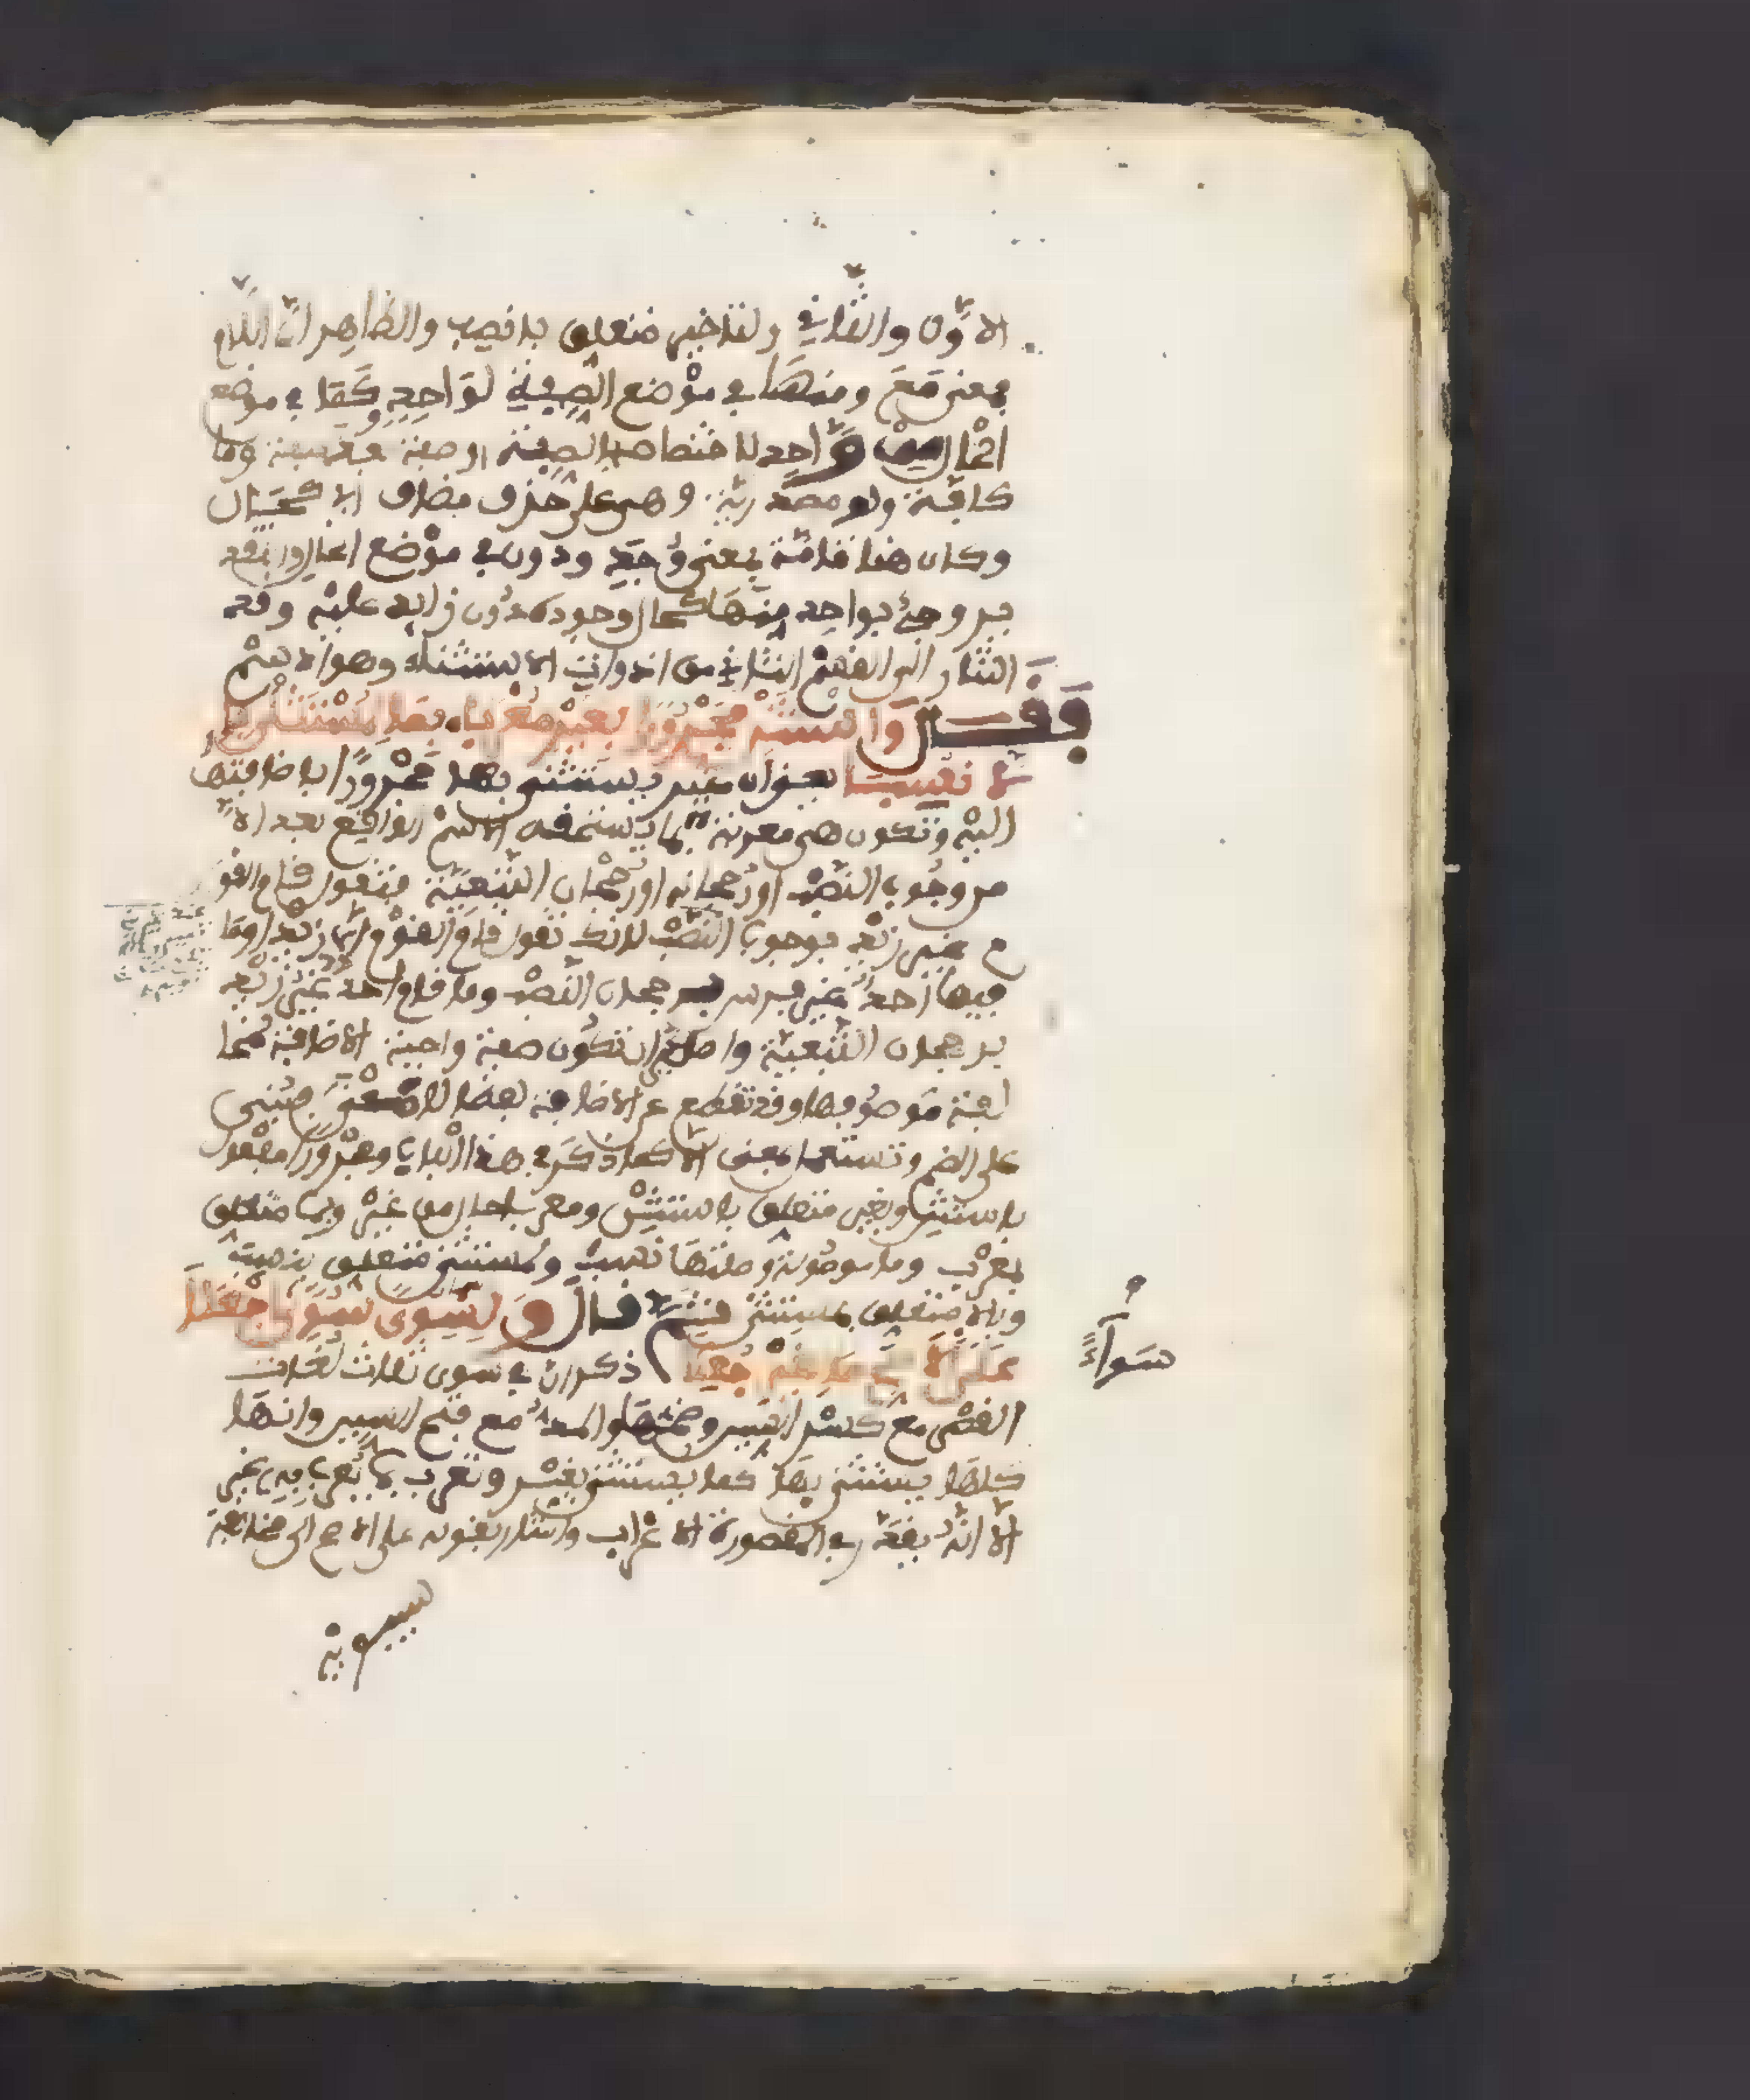 الاوّل والثاني ولتاخير متعلق بانصب والظاهر انّ اللام
بمعنى مَعَ ومنها في موْضع الصِّفة لوَاحِدٍ وكَمَا في موضع
الحْال من وَاحِد لاختصاصه بالصِّفة او صفة وما
كافّة ولو مصدرية وهي على حذف مضاف اي كحال
وكان هنا تامّة بمعنى وُجِدَ ودون في موْضع الحال والتقدير
بر وجئ بواحد منهَا كحال وجوده دُون زايد عليْه وقد
اشار الى القسْم الثاني من ادوات الاستثناء وهو الاسْم
فَقَــالَ وَاسْتَثْنِ مَجْرُورًا بِغَيْرٍ مُعْرَبَا بِمَا لِمُسْتَثْنًى بِاِ
لَّا نُسِبَا يعني ان غير يستثنى بها مجْرورًا باضافتها
اليْه وتكون هي معربة بما يستحقه الاسْم الواقع بعد الاّ
من وجُوب النّصْب او رُجحانه او رُجْحان التّبعيّة فتقول قام القوْ
م غير زيْد بوجوب النّصْب لانك تقول قام القوْم الاّ زيْدا وما
فيها احدٌ غير فرس برجحان النّصْب وما قام احدٌ غيرُ زيْد
برجحان التّبعيّة واصل غير ان تكون صفة واجبة الاضافة مُخا
لفة مَوصُوفها وقد تقطع عن الاضافة لفظا فتبنى
على الضم وتستعمل بمعنى الاّ كما ذكَر في هذا الْباب ومجْرورًا مفعْول
باستثْن وبغير متعلق باستثْن ومعربا حال من غيْر وبما متعلق
بمعْرب وما موصُولة وصلتها نُسب ولمستثنى متعلق بنسب
وبالا متعلق بمستثنى قال وَلِسِوًى سُوًى سَوَاءٍ اجْعَلَا
عَلَى الْاَصَحِّ مَا لِغَيْرٍ جُعِلَا ذكر ان في سوى ثلاث لغات
القصْر مع كسْر السين وضمّها والمدّ مع فتح السين وانها
كلها يستثنى بهَا كما يستثنى بغيْر وتعرب بما يُعرب به غير
الاّ انّه يقدّر في المقصورة الاعْراب واشار بقوله على الاصح الى مخالفة
سيبويْه
سَوَآءٍ